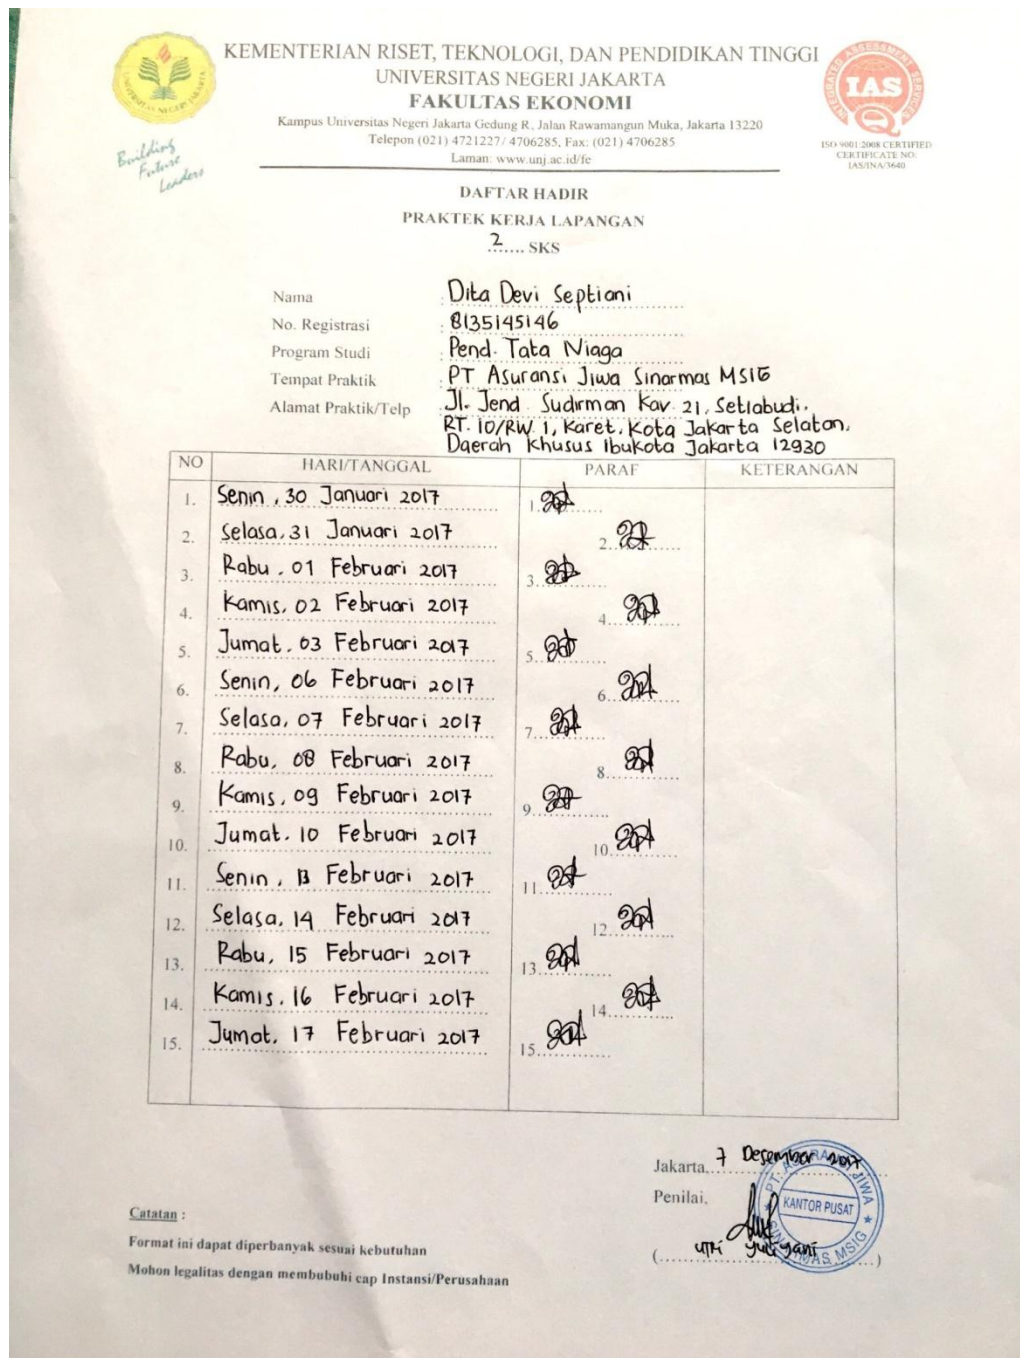 KEMENTERIAN RISET, TEKNOLOGI, DAN PENDIDIKAN TINGGI
UNIVERSITAS NEGERI JAKARTA
FAKULTAS EKONOMI
Kampus Universitas Negeri Jakarta Gedung R, Jalan Rawamangun Muka, Jakarta 13220
Telepon (021) 4721227/ 4706285, Fax: (021) 4706285
Laman: www.unj.ac.id/fe
UNIVERSITAS NEGERI JAKARTA
Building
Future
Leaders
INTEGRATED ASSESSMENT SERVICES
IAS
ISO 9001:2008 CERTIFIED
CERTIFICATE NO:
IAS/INA/3640
DAFTAR HADIR
PRAKTEK KERJA LAPANGAN
2 ..... SKS
Nama : Dita Devi Septiani
No. Registrasi : 8135145146
Program Studi : Pend. Tata Niaga
Tempat Praktik : PT Asuransi Jiwa Sinarmas MSIG
Alamat Praktik/Telp : Jl. Jend. Sudirman Kav. 21, Setiabudi,
RT. 10/RW. 1, Karet, Kota Jakarta Selatan,
Daerah Khusus Ibukota Jakarta 12930
NO HARI/TANGGAL PARAF KETERANGAN
1. Senin, 30 Januari 2017 1.
2. Selasa, 31 Januari 2017 2.
3. Rabu, 01 Februari 2017 3.
4. Kamis, 02 Februari 2017 4.
5. Jumat, 03 Februari 2017 5.
6. Senin, 06 Februari 2017 6.
7. Selasa, 07 Februari 2017 7.
8. Rabu, 08 Februari 2017 8.
9. Kamis, 09 Februari 2017 9.
10. Jumat, 10 Februari 2017 10.
11. Senin, 13 Februari 2017 11.
12. Selasa, 14 Februari 2017 12.
13. Rabu, 15 Februari 2017 13.
14. Kamis, 16 Februari 2017 14.
15. Jumat, 17 Februari 2017 15.
Jakarta, 7 Desember 2017
Penilai,
PT. ASURANSI JIWA
KANTOR PUSAT
SINARMAS MSIG
(Utri Yuliyani)
Catatan :
Format ini dapat diperbanyak sesuai kebutuhan
Mohon legalitas dengan membubuhi cap Instansi/Perusahaan